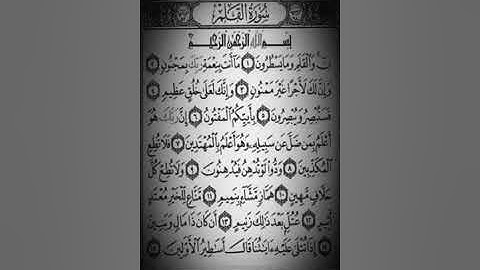 سُورَةُ القَلَمِ
بِسْمِ اللَّهِ الرَّحْمَٰنِ الرَّحِيمِ
نٓ وَالْقَلَمِ وَمَا يَسْطُرُونَ ١ مَا أَنْتَ بِنِعْمَةِ رَبِّكَ بِمَجْنُونٍ ٢
وَإِنَّ لَكَ لَأَجْرًا غَيْرَ مَمْنُونٍ ٣ وَإِنَّكَ لَعَلَىٰ خُلُقٍ عَظِيمٍ ٤
فَسَتُبْصِرُ وَيُبْصِرُونَ ٥ بِأَييِّكُمُ الْمَفْتُونُ ٦ إِنَّ رَبَّكَ هُوَ
أَعْلَمُ بِمَنْ ضَلَّ عَنْ سَبِيلِهِ وَهُوَ أَعْلَمُ بِالْمُهْتَدِينَ ٧ فَلَا تُطِعِ
الْمُكَذِّبِينَ ٨ وَدُّوا لَوْ تُدْهِنُ فَيُدْهِنُونَ ٩ وَلَا تُطِعْ كُلَّ
حَلَّافٍ مَهِينٍ ١٠ هَمَّازٍ مَشَّاءٍ بِنَمِيمٍ ١١ مَنَّاعٍ لِلْخَيْرِ مُعْتَدٍ
أَثِيمٍ ١٢ عُتُلٍّ بَعْدَ ذَٰلِكَ زَنِيمٍ ١٣ أَنْ كَانَ ذَا مَالٍ وَبَنِينَ
١٤ إِذَا تُتْلَىٰ عَلَيْهِ آيَاتُنَا قَالَ أَسَاطِيرُ الْأَوَّلِينَ ١٥